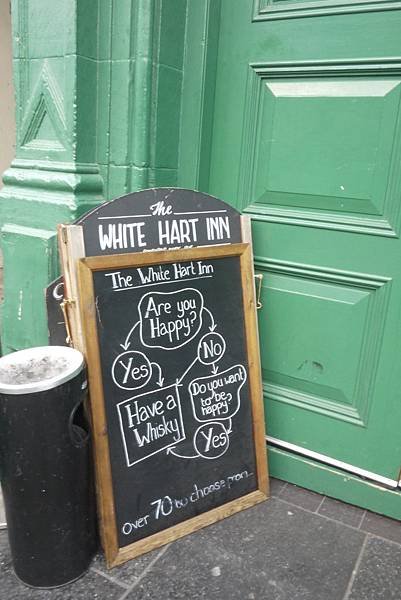 The
WHITE HART INN
The White Hart Inn
Are you
Happy?
Yes
No
Do you want
to be
happy?
Have a
Whisky
Yes
Over 70 to choose from...